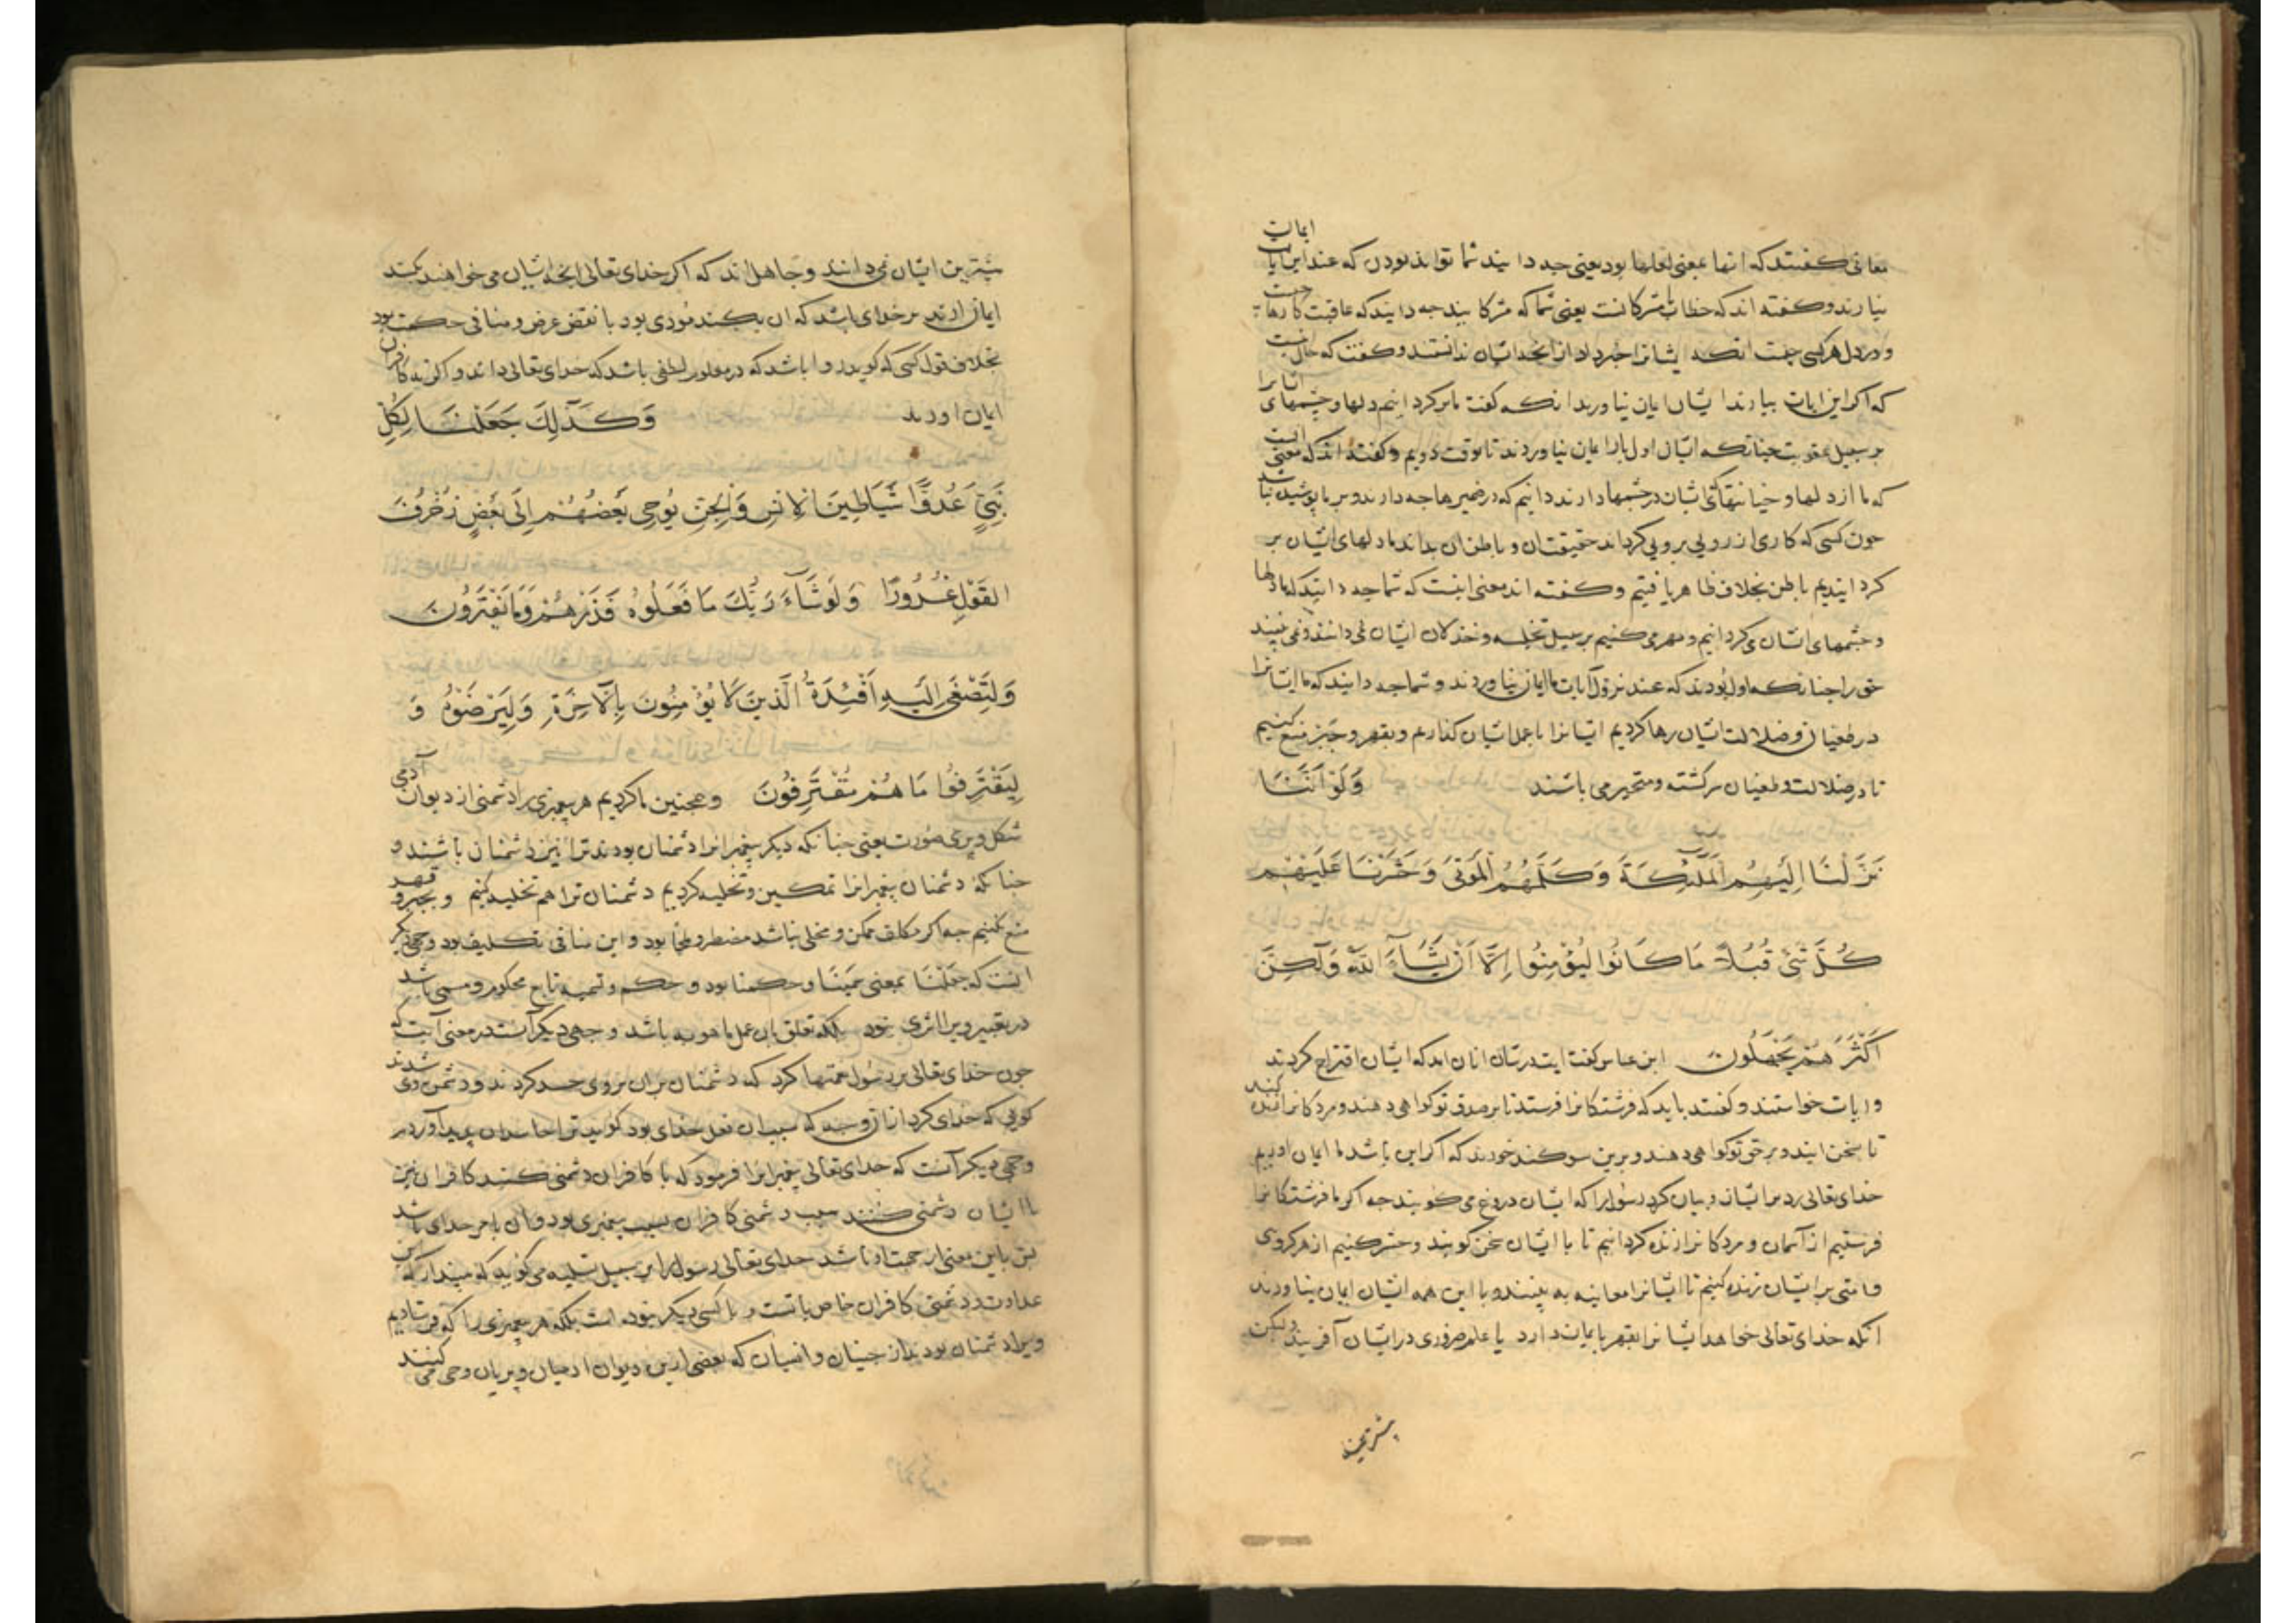 معانی گفتند که انها بمعنی لعلها بود یعنی چه دانید شما تواند بودن که عند این ایات ایمان
نیارند و گفته اند که خطاب با مشرکانست یعنی شما که مشرکانید چه دانید که عاقبت کارها چیست
و در دل هر کسی چیست انکه ایشانرا خبر داد از انچه ایشان ندانستند و گفت که حال
که اکر این ایات بیارند ایشان ایمان نیاورند انکه گفت ما برکردانیم دلها و چشمهای ایشانرا
بر سبیل عقوبت چنانکه ایشان اول بار ایمان نیاوردند تا بوقت دویم و گفته اند که معنی انست
که ما از دلها و خیانتهای ایشان در چشمها دارند دانیم که در ضمیرها چه دارند و بر ما پوشیده نباشد
چون کسی که کاری از رویی برویی کرداند حقیقت ان و باطن ان بداند ما دلهای ایشان بر
کردانیدیم باطن بخلاف ظاهر یافتیم و گفته اند معنی اینست که شما چه دانید که ما دلها
و چشمهای ایشان می کردانیم و مهر می کنیم بر سبیل تخلیه و خذلان ایشان نمی دانند و نمی بینند
حق را چنانکه اول بودند که عند نزول آیات ما ایمان نیاوردند و شما چه دانید که ما ایشانرا
در طغیان و ضلالت ایشان رها کردیم ایشانرا با عمل ایشان کذاریم و بقهر و جبر منع نکنیم
تا در ضلالت و طغیان سرکشته و متحیر می باشند وَلَوْ اَنَّنَا
نَزَّلْنَا اِلَيْهِمُ الْمَلٰٓئِكَةَ وَكَلَّمَهُمُ الْمَوْتٰى وَحَشَرْنَا عَلَيْهِمْ
كُلَّ شَيْءٍ قُبُلًا مَا كَانُوا لِيُؤْمِنُوا اِلَّا اَنْ يَشَاءَ اللّٰهُ وَلٰكِنَّ
اَكْثَرَهُمْ يَجْهَلُونَ ابن عباس گفت ایت در شان انان امد که ایشان اقتراح کردند
و ایات خواستند و گفتند باید که فرشتکانرا فرستد تا بر صدق تو کواهی دهند و مردکانرا زنده کند
تا سخن ایند و بر حق تو کواهی دهند و برین سوکند خوردند که اکر این باشد ما ایمان اوریم
خدای تعالی رد بر ایشان و بیان کرد رسول را که ایشان دروغ می گویند چه اکر ما فرشتکانرا
فرستیم از آسمان و مردکانرا زنده کردانیم تا با ایشان سخن کویند و حشر کنیم از هر کروهی
و امتی بر ایشان زنده کنیم تا ایشانرا معاینه به بینند و با این همه ایشان ایمان نیاورند
انکه خدای تعالی خواهد ایشانرا بقهر بایمان دارد یا علم ضروری در ایشان آفریند ولیکن
بیشترین
بیشترین ایشان نمی دانند و جاهل اند که اکر خدای تعالی انچه ایشان می خواهند بکند
ایمان ارند بر خدای باشد که ان بکند مودی بود با نقض غرض و منافی حکمت بود
بخلاف قول کسی که کوید روا باشد که در مقدور لطفی باشد که خدای تعالی داند و اکر کافران
ایمان اورند وَكَذٰلِكَ جَعَلْنَا لِكُلِّ
نَبِيٍّ عَدُوًّا شَيَاطِينَ الْاِنْسِ وَالْجِنِّ يُوحِي بَعْضُهُمْ اِلٰى بَعْضٍ زُخْرُفَ
الْقَوْلِ غُرُورًا وَلَوْ شَاءَ رَبُّكَ مَا فَعَلُوهُ فَذَرْهُمْ وَمَا يَفْتَرُونَ
وَلِتَصْغٰى اِلَيْهِ اَفْئِدَةُ الَّذِينَ لَا يُؤْمِنُونَ بِالْاٰخِرَةِ وَلِيَرْضَوْهُ وَ
لِيَقْتَرِفُوا مَا هُمْ مُقْتَرِفُونَ و همچنین ما کردیم هر پیغمبری را دشمنی از دیوان آدمی
شکل و پری صورت یعنی چنانکه دیکر پیغمبرانرا دشمنان بودند ترا نیز دشمنان باشند و
چنانکه دشمنان پیغمبرانرا تمکین و تخلیه کردیم دشمنان ترا هم تخلیه کنیم و بجبر و قهر
منع نکنیم چه اکر مکلف ممکن و مخلی نباشد مضطر و ملجا بود و این منافی تکلیف بود وجهی دیکر
انست که جعلنا بمعنی سمینا و حکمنا بود و حکم و تسمیه تابع محکوم و مسمی باشد
در تغییر ویرا اثری نبود بلکه تعلق بان علی ما هو به باشد وجهی دیکر آنست در معنی آیت که
چون خدای تعالی بر رسول نعمتها کرد که دشمنان بران بر وی حسد کردند و دشمن وی شدند
کویی که خدای کرد از ان وجه که سبب ان فعل خدای بود کویند ترا حاسدان پدید آورد
وجهی دیکر آنست که خدای تعالی پیغمبرانرا فرمود که با کافران دشمنی کنند کافران نیز
با ایشان دشمنی کنند سبب دشمنی کافران سبب پیغمبری بود وان بامر خدای باشد
پس باین معنی از جهت او باشد خدای تعالی رسول را بر سبیل تسلیه می کوید که مپندار که این
عداوت و دشمنی کافران خاص با تست و با کسی دیکر نبوده است بلکه هر پیغمبری را که فرستادیم
ویرا دشمنان بودند از جنیان و انسیان که بعضی ازین دیوان ادمیان و پریان وحی می کنند